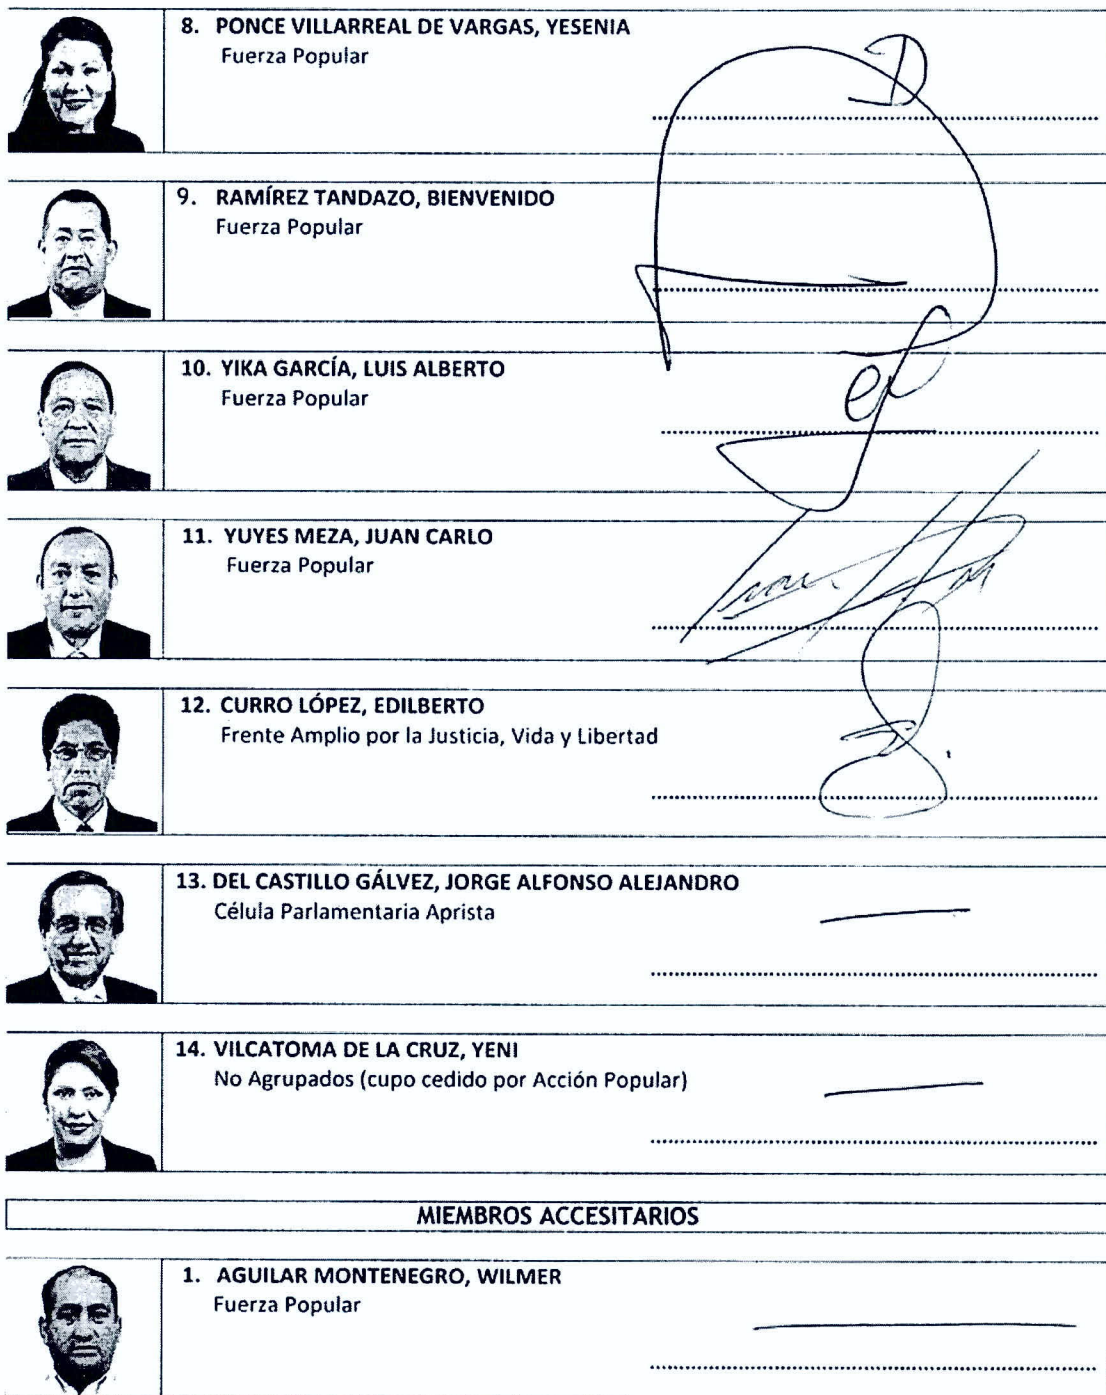 8. PONCE VILLARREAL DE VARGAS, YESENIA
Fuerza Popular
9. RAMÍREZ TANDAZO, BIENVENIDO
Fuerza Popular
10. YIKA GARCÍA, LUIS ALBERTO
Fuerza Popular
11. YUYES MEZA, JUAN CARLO
Fuerza Popular
12. CURRO LÓPEZ, EDILBERTO
Frente Amplio por la Justicia, Vida y Libertad
13. DEL CASTILLO GÁLVEZ, JORGE ALFONSO ALEJANDRO
Célula Parlamentaria Aprista
14. VILCATOMA DE LA CRUZ, YENI
No Agrupados (cupo cedido por Acción Popular)
MIEMBROS ACCESITARIOS
1. AGUILAR MONTENEGRO, WILMER
Fuerza Popular